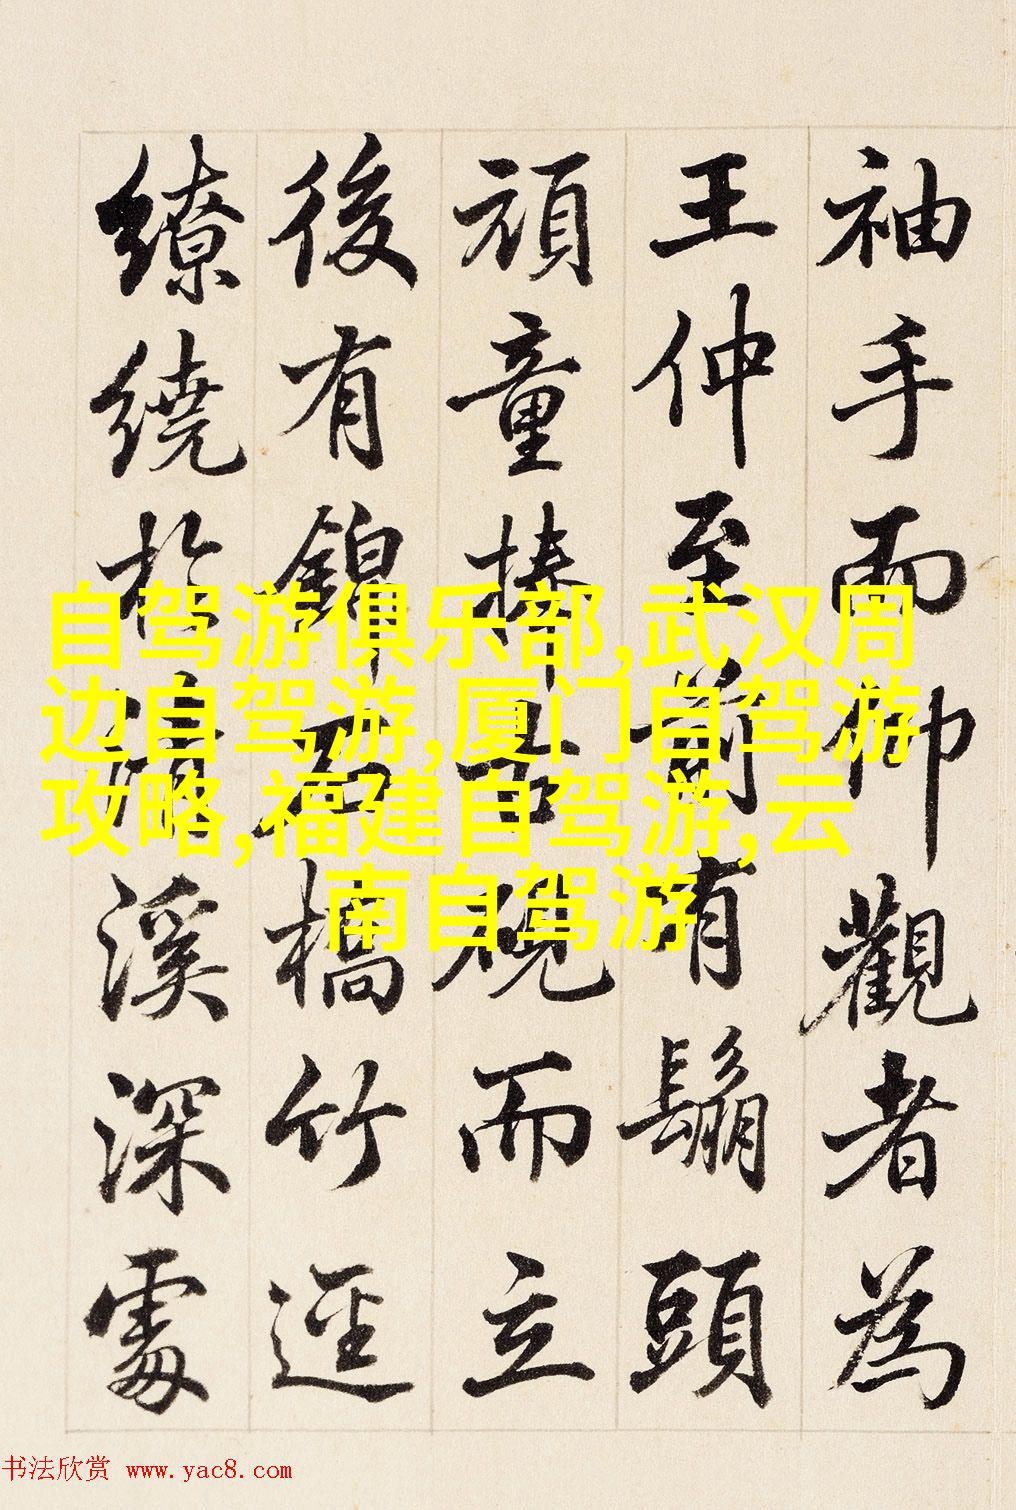 袖手而仰觀者為
王仲至前有鬅頭
頑童捧古硯而立
後有錦石橋竹逕
繚繞於清溪深處
自驾游俱乐部,武汉周
边自驾游,厦门自驾游
攻略,福建自驾游,云
南自驾游
书法欣赏 www.yac8.com